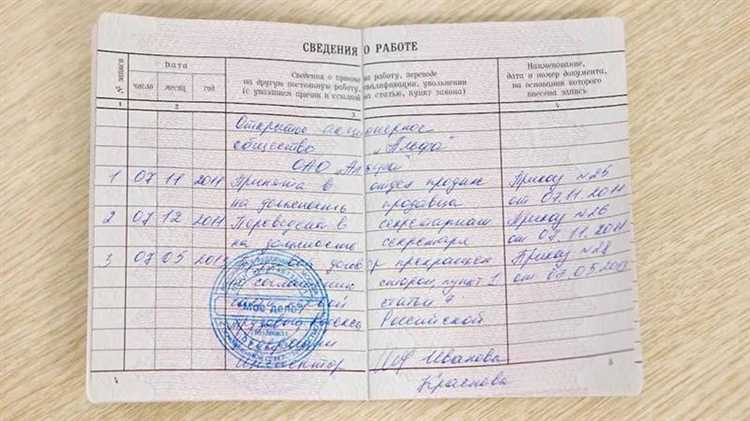 СВЕДЕНИЯ О РАБОТЕ
№ записи
Дата
число месяц год
Сведения о приеме на работу, переводе
на другую постоянную работу, квалификации, увольнении
(с указанием причин и ссылкой на статью, пункт закона)
Наименование,
дата и номер документа,
на основании которого
внесена запись
1 2 3 4
Открытое акционерное
общество „Альфа“
ОАО „Альфа“
1 07 11 2011 Принята в отдел продаж Приказ №25
на должность продавца от 07.11.2011
2 07 12 2011 Переведена в секретариат Приказ №26
на должность секретаря от 07.11.2011
3 07 05 договор прекращен Приказ №28
по соглашению сторон, пункт 1 от 07.05
статьи
Трудового кодекса Российской
Федерации
Инспектор Иванова
Краснова
4